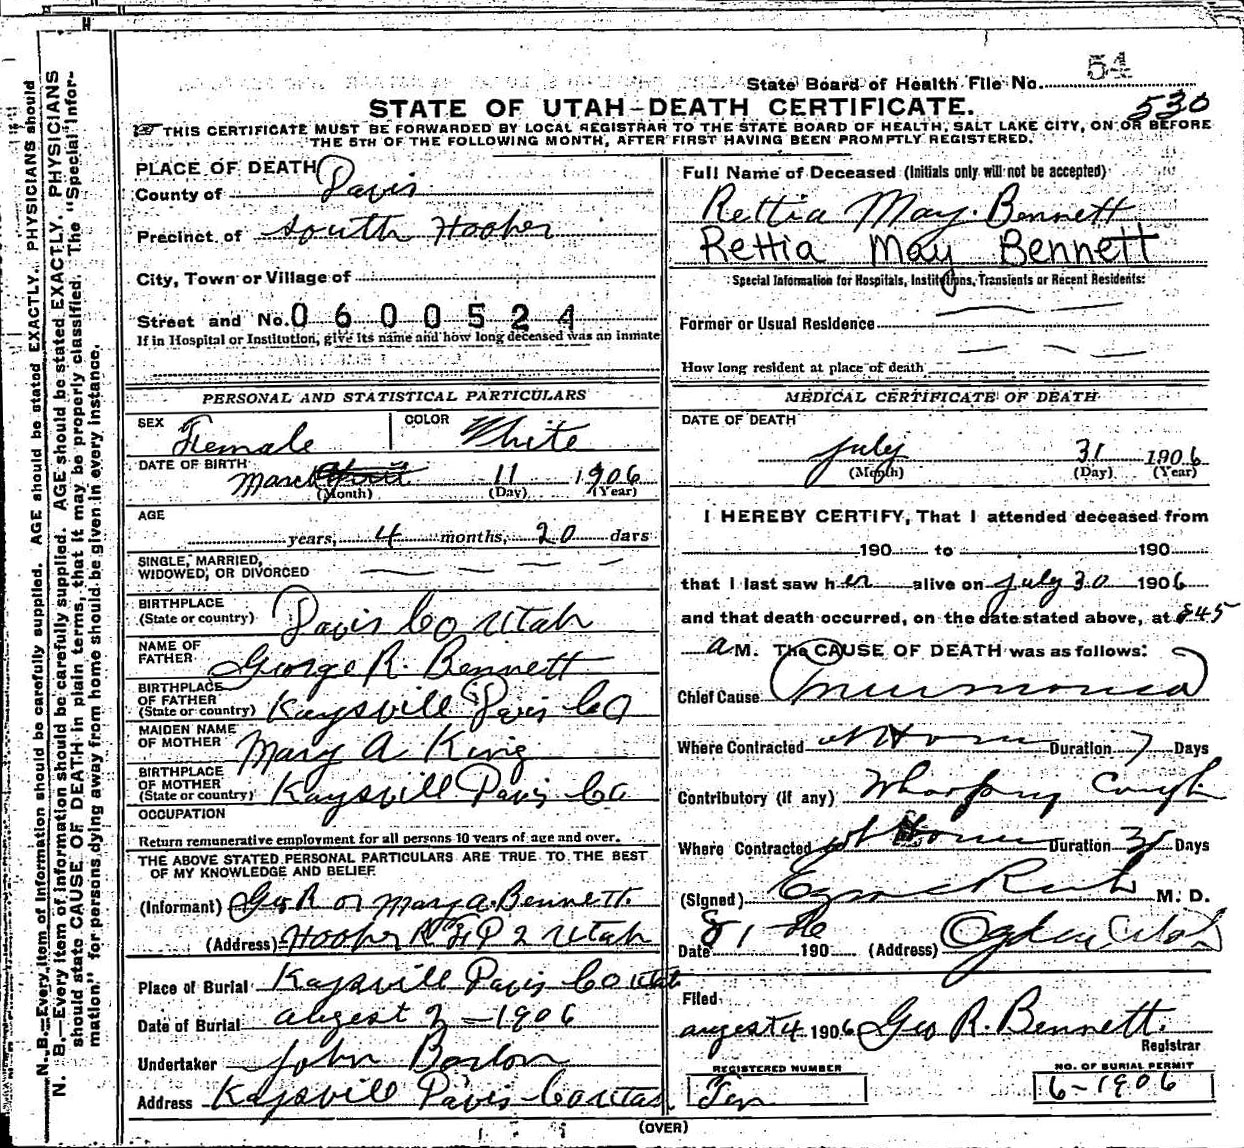 State Board of Health File No. 54
STATE OF UTAH-DEATH CERTIFICATE.
530
THIS CERTIFICATE MUST BE FORWARDED BY LOCAL REGISTRAR TO THE STATE BOARD OF HEALTH, SALT LAKE CITY, ON OR BEFORE
THE 5TH OF THE FOLLOWING MONTH, AFTER FIRST HAVING BEEN PROMPTLY REGISTERED.
PLACE OF DEATH
County of Davis
Precinct of South Hooper
City, Town or Village of
Street and No. 0600524
If in Hospital or Institution, give its name and how long deceased was an inmate
PERSONAL AND STATISTICAL PARTICULARS
SEX Female COLOR White
DATE OF BIRTH March 11 1906
(Month) (Day) (Year)
AGE
years, 4 months, 20 days
SINGLE, MARRIED,
WIDOWED, OR DIVORCED
BIRTHPLACE
(State or country) Davis Co Utah
NAME OF
FATHER George R. Bennett
BIRTHPLACE
OF FATHER
(State or country) Kaysvill Davis Co
MAIDEN NAME
OF MOTHER Mary A King
BIRTHPLACE
OF MOTHER
(State or country) Kaysvill Davis Co
OCCUPATION
Return remunerative employment for all persons 10 years of age and over.
THE ABOVE STATED PERSONAL PARTICULARS ARE TRUE TO THE BEST
OF MY KNOWLEDGE AND BELIEF
(Informant) Geo R or Mary A. Bennett.
(Address) Hooper R F D 2 Utah
Place of Burial Kaysvill Davis Co Utah
Date of Burial augest 2 - 1906
Undertaker John Barlow
Address Kaysvill Davis Co Utah
Full Name of Deceased (Initials only will not be accepted)
Rettia May. Bennett
Rettia May Bennett
Special Information for Hospitals, Institutions, Transients or Recent Residents:
Former or Usual Residence
How long resident at place of death
MEDICAL CERTIFICATE OF DEATH
DATE OF DEATH
July 31 1906
(Month) (Day) (Year)
I HEREBY CERTIFY, That I attended deceased from
190 to 190
that I last saw her alive on July 30 1906
and that death occurred, on the date stated above, at 845
a M. The CAUSE OF DEATH was as follows:
Chief Cause Pneumonia
Where Contracted at Home Duration 7 Days
Contributory (if any) Whooping Cough
Where Contracted at Home Duration Days
(Signed) M. D.
Date 8 1 06 190 (Address) Ogden Utah
Filed
augest 4 1906 Geo R. Bennett.
Registrar
REGISTERED NUMBER
Ten
NO. OF BURIAL PERMIT
6-1906
(OVER)
N. B.—Every item of information should be carefully supplied. AGE should be stated EXACTLY. PHYSICIANS should
N. B.—Every item of information should be carefully supplied. AGE should be stated EXACTLY. PHYSICIANS
should state CAUSE OF DEATH in plain terms, that it may be properly classified. The "Special Infor-
mation" for persons dying away from home should be given in every instance.